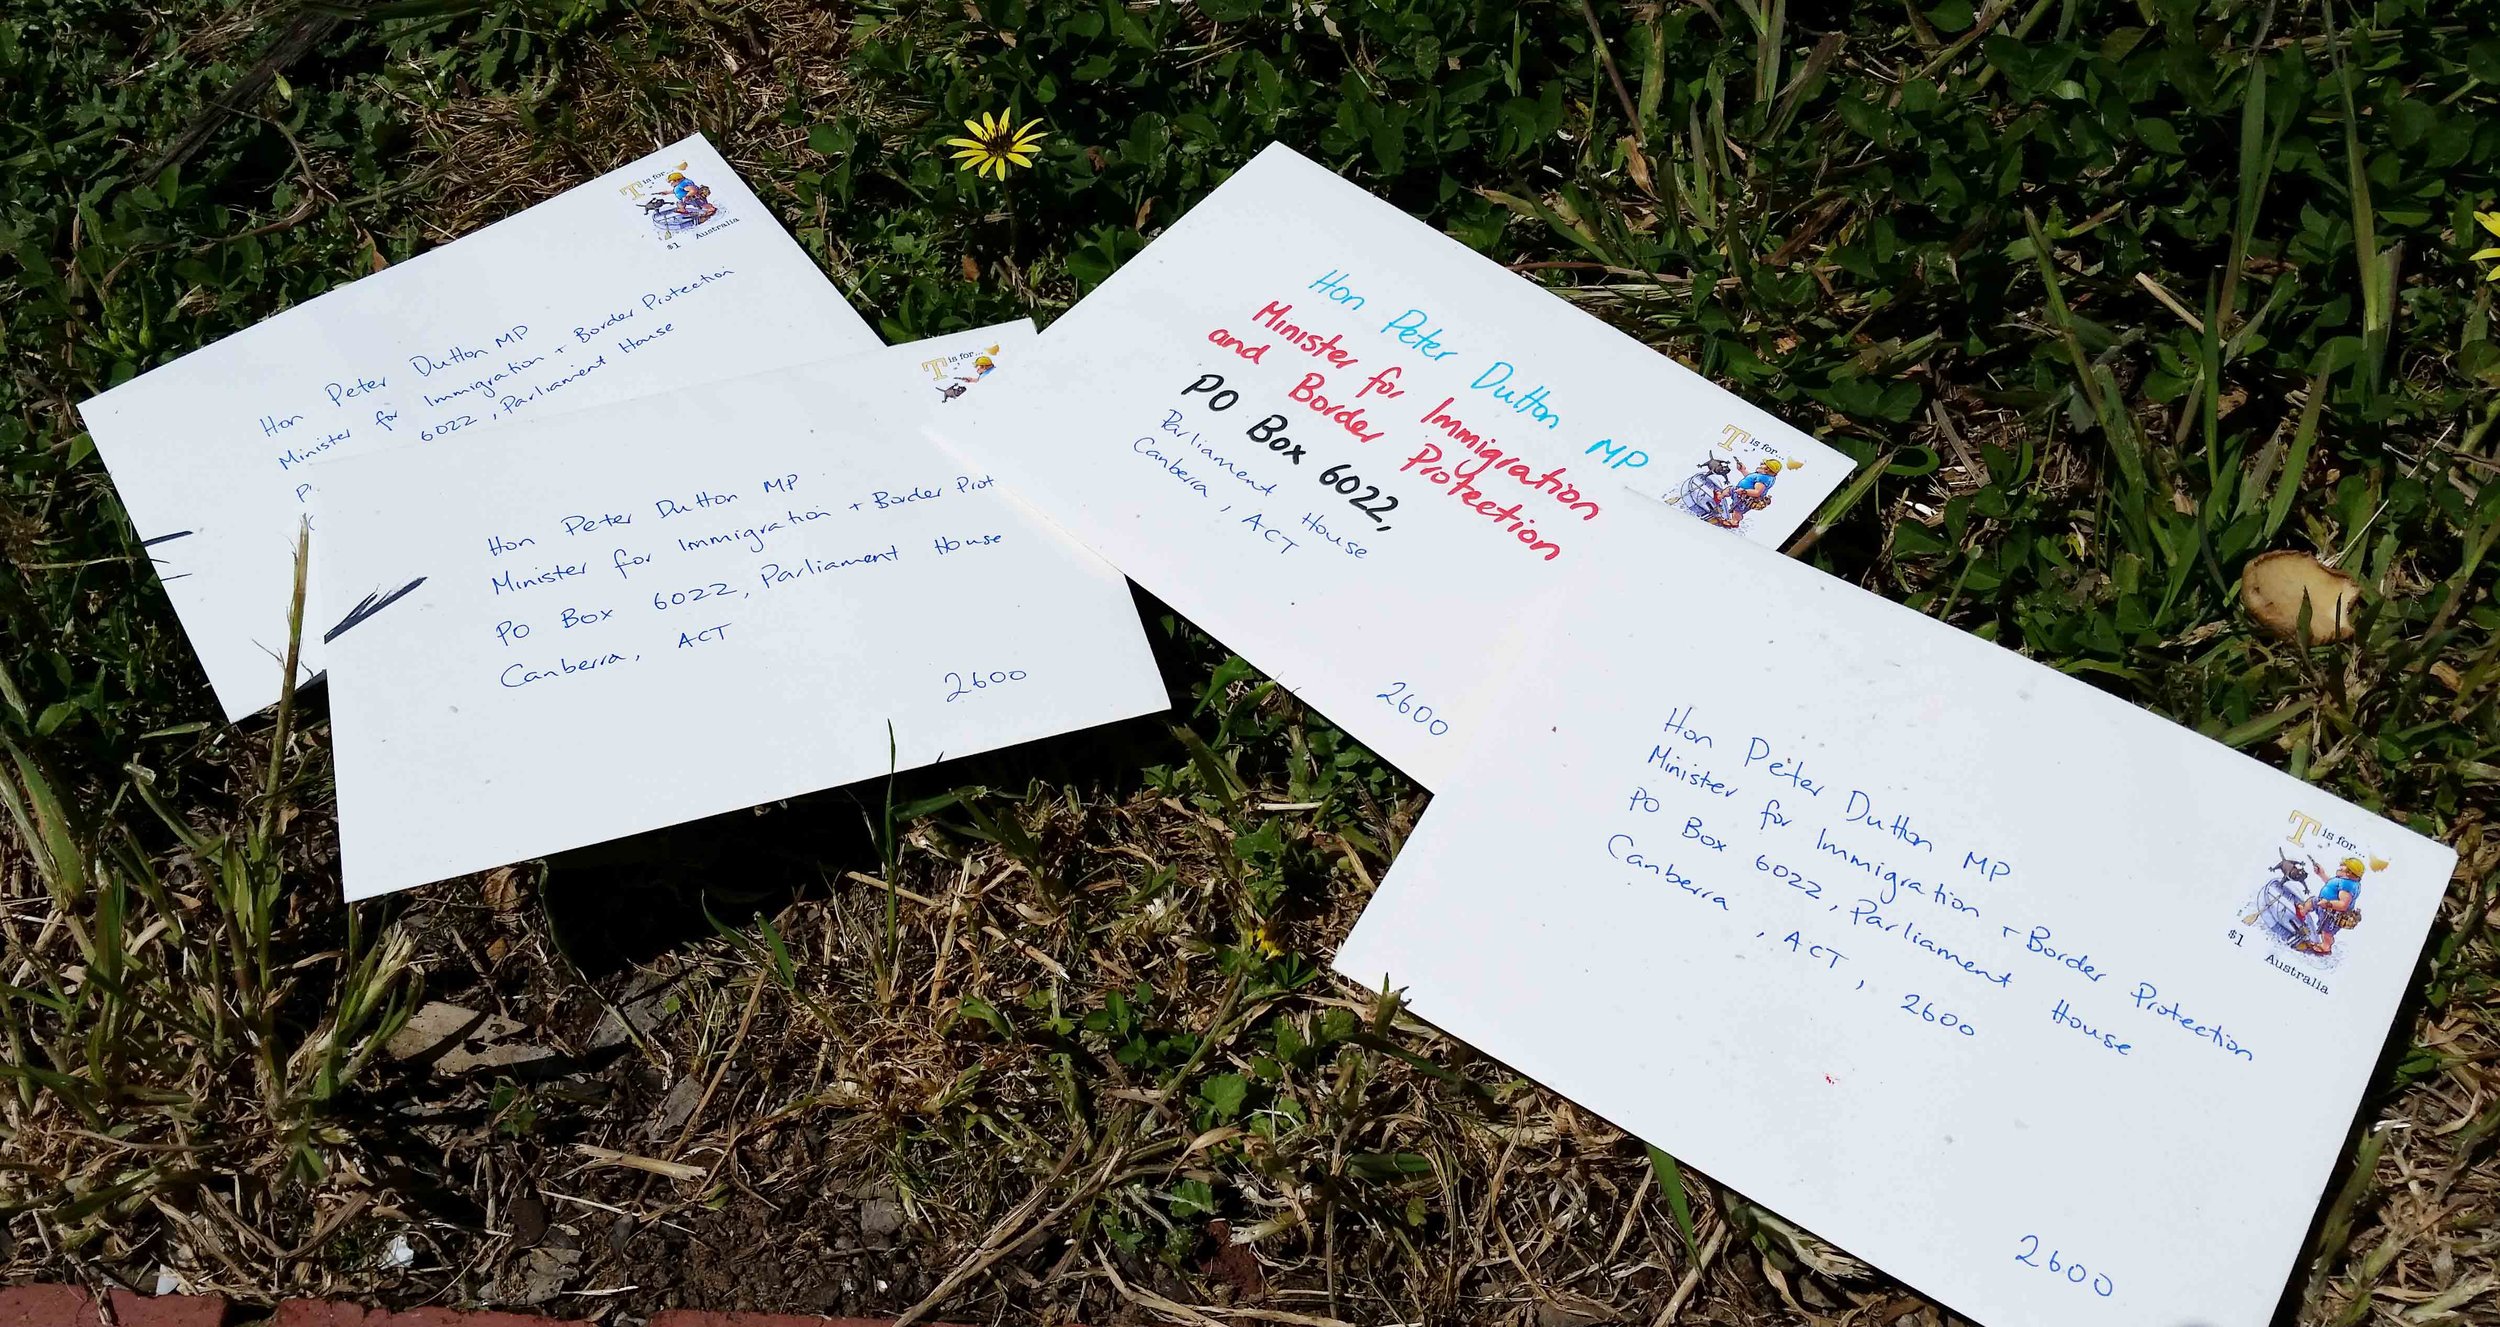 T is for...
$1 Australia
Hon Peter Dutton MP
Minister for Immigration + Border Protection
6022, Parliament House
T is for...
Hon Peter Dutton MP
Minister for Immigration + Border Prot
PO Box 6022, Parliament House
Canberra, ACT
2600
T is for...
Hon Peter Dutton MP
Minister for Immigration
and Border Protection
PO Box 6022,
Parliament House
Canberra, ACT
2600
T is for...
$1 Australia
Hon Peter Dutton MP
Minister for Immigration + Border Protection
PO Box 6022, Parliament House
Canberra, ACT, 2600
2600